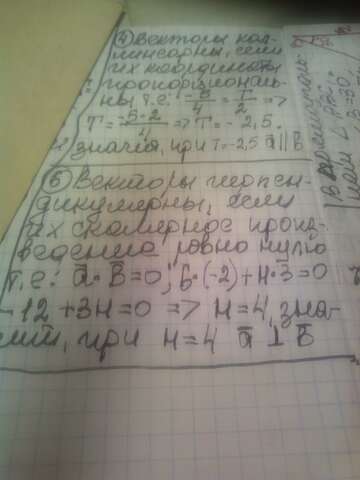 ④ Векторы кол-
линеарны, если
их координаты
пропорциональ-
ны т.е: -5/4 = T/2 =>
T = -5·2/4 => T = -2,5.
значит, при T = -2,5 a̅ || b̅
⑤ Векторы перпен-
дикулярны, если
их скалярное произ-
ведение равно нулю
т.е: a̅ · b̅ = 0; 6·(-2) + H·3 = 0
-12 + 3H = 0 => H = 4, зна-
чит, при H = 4 a̅ ⊥ b̅